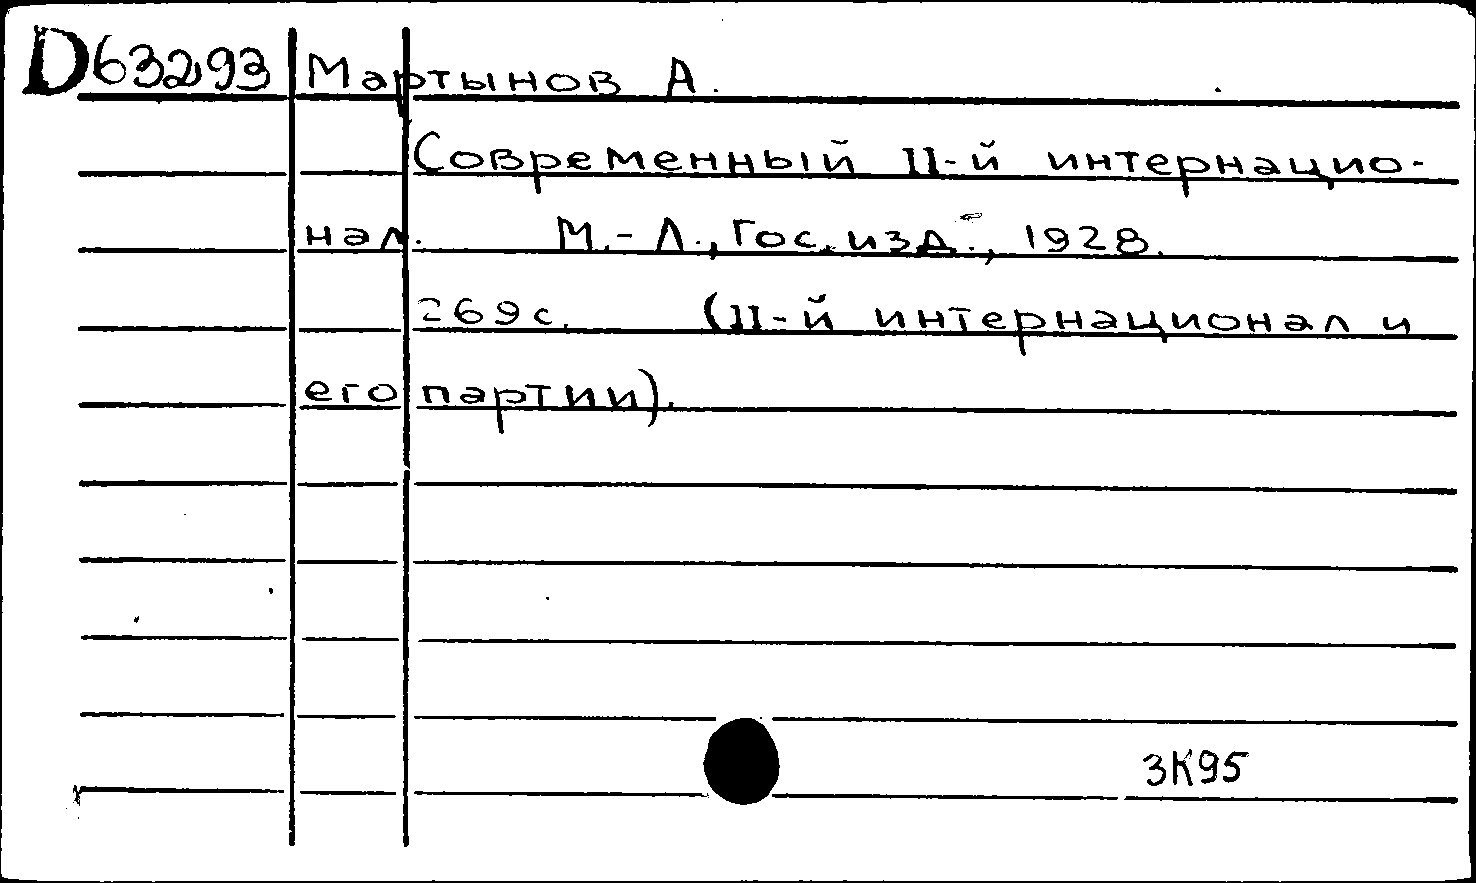 D63293 Мартынов А.
Современный II-й интернацио-
нал. М.-Л., Гос.изд., 1928.
269с. (II-й интернационал и
его партии).
3К95